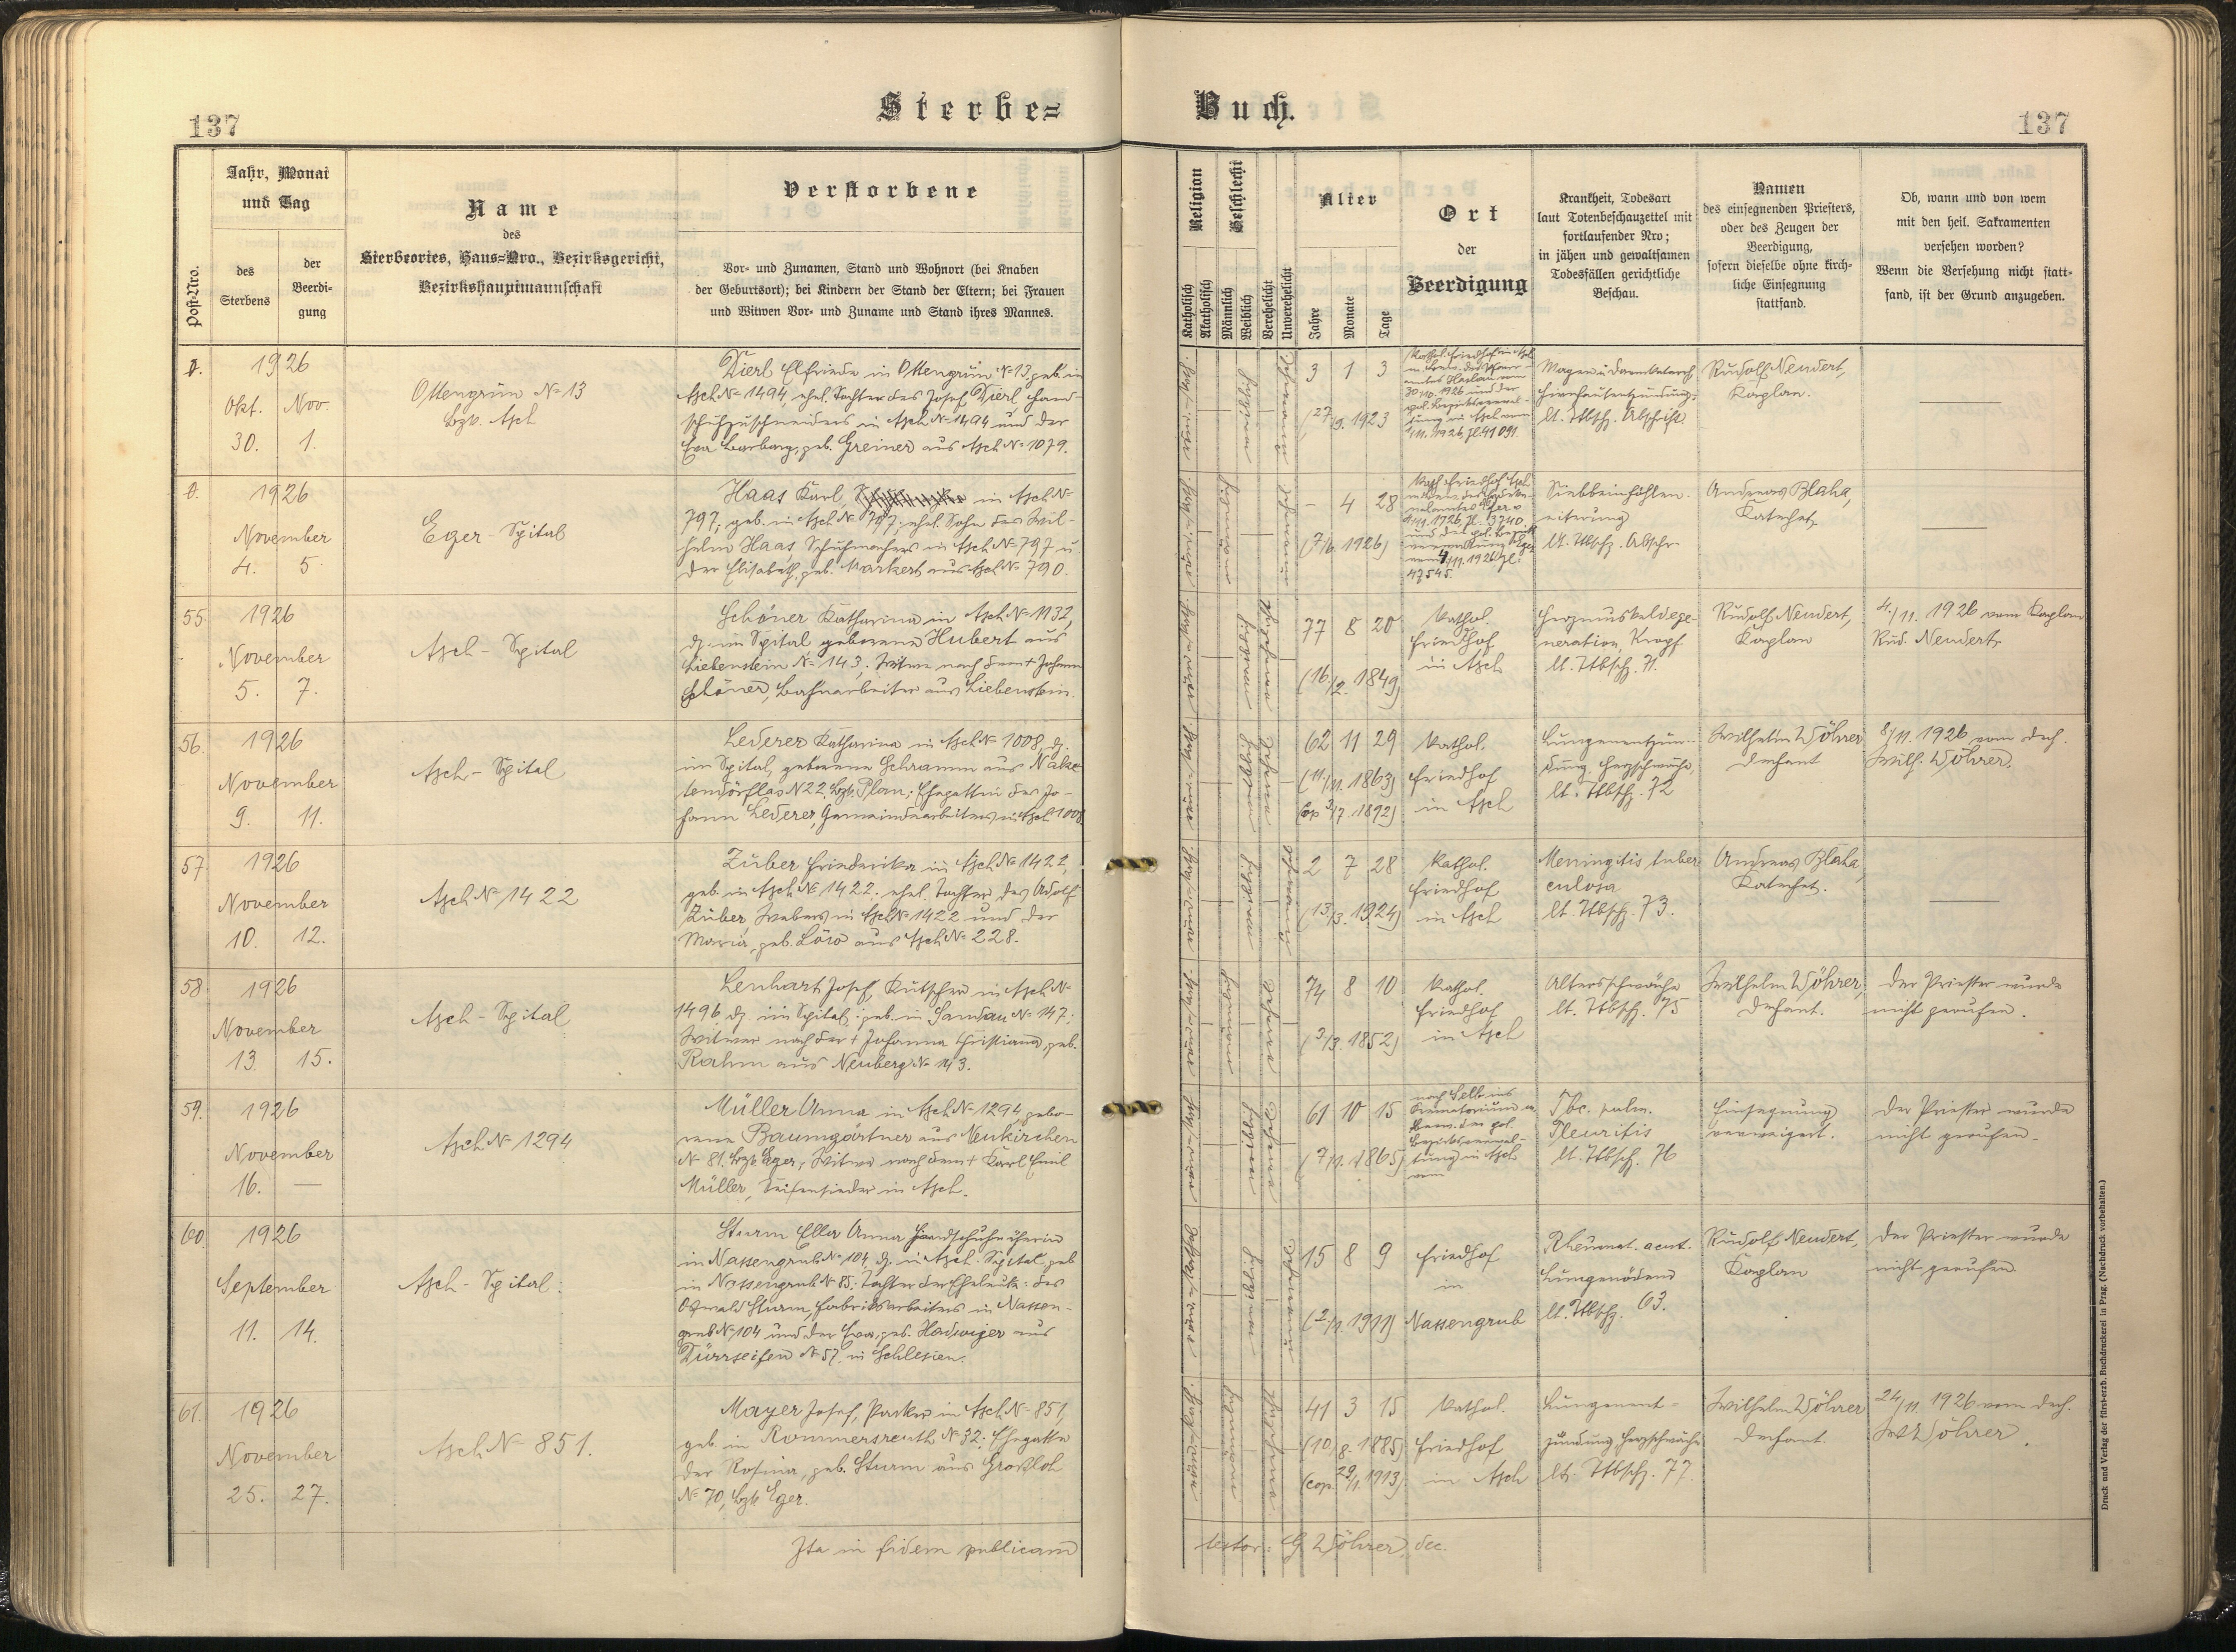 Sterbe=
Buch.
137
137
Post-Nro.
Jahr, Monat
und Tag
des
Sterbens
der
Beerdi-
gung
Name
des
Sterbeortes, Haus=Nro., Bezirksgericht,
Bezirkshauptmannschaft
Verstorbene
Vor- und Zunamen, Stand und Wohnort (bei Knaben
der Geburtsort); bei Kindern der Stand der Eltern; bei Frauen
und Witwen Vor- und Zuname und Stand ihres Mannes.
Religion
Katholisch
Akatholisch
Geschlecht
Männlich
Weiblich
Verehelicht
Unverehelicht
Alter
Jahre
Monate
Tage
Ort
der
Beerdigung
Krankheit, Todesart
laut Totenbeschauzettel mit
fortlaufender Nro;
in jähen und gewaltsamen
Todesfällen gerichtliche
Beschau.
Namen
des einsegnenden Priesters,
oder des Zeugen der
Beerdigung,
sofern dieselbe ohne kirch-
liche Einsegnung
stattfand.
Ob, wann und von wem
mit den heil. Sakramenten
versehen worden?
Wenn die Versehung nicht statt-
fand, ist der Grund anzugeben.
1926
Okt. Nov.
30. 1.
Ottengrün № 13
Bzk. Asch
Dierl Elfriede in Ottengrün № 13 geb. in
Asch № 1494, ehel. Tochter des Josef Dierl Hand-
schuhzuschneiders in Asch № 1494 und der
Eva Barbara, geb. Greiner aus Asch № 1079.
3 1 3
(27/9. 1923
Kathol. Friedhof in Asch
30/10. 1926 und der
1/11. 1926, Zl. 41091
Magen u. Darmkatarrh
Hirnhautentzündung.
lt. Ttbsch. Abschrift.
Rudolf Neudert,
Kaplan.
1926
November
4. 5.
Eger - Spital
Haas Karl, in Asch №
797; geb. in Asch № 797; ehel. Sohn des Wil-
helm Haas Schuhmachers in Asch № 797 u.
der Elisabeth, geb. Markert aus Asch № 790.
– 4 28
(7/6. 1926)
Kath. Friedhof Asch
Siebbeinhöhlen-
eiterung
lt. Ttbsch. Abschr.
Andreas Blaha,
Katechet.
55.
1926
November
5. 7.
Asch - Spital
Schöner Katharina in Asch № 1132,
dz. im Spital geborene Hubert aus
Liebenstein № 143; Witwe nach dem † Johann
Schöner, Bahnarbeiter aus Liebenstein.
77 8 20
(16./2. 1849)
Kathol.
Friedhof
in Asch
Herzmuskeldege-
neration, Kropf
lt. Ttbsch. 71.
Rudolf Neudert,
Kaplan
4./11. 1926 vom Kaplan
Rud. Neudert.
56.
1926
November
9. 11.
Asch - Spital
Lederer Katharina in Asch № 1008, dz.
im Spital, geborene Schramm aus Nake-
tendörflas № 22, Bzk. Plan; Ehegattin des Jo-
hann Lederer, Gemeindearbeiters in Asch 1008
62 11 29
(11./11. 1863)
(cop 3/7. 1892)
Kathol.
Friedhof
in Asch
Lungenentzün-
dung, Herzschwäche,
lt. Ttbsch. 72
Wilhelm Wöhrer
Dechant
8/11. 1926 vom Dech.
Wilh. Wöhrer.
57.
1926
November
10. 12.
Asch № 1422
Züber Friederika in Asch № 1422,
geb. in Asch № 1422. ehel. Tochter des Adolf
Züber, Webers in Asch № 1422 und der
Maria, geb. Löw aus Asch № 228.
2 7 28
(13./3. 1924)
Kathol.
Friedhof
in Asch
Meningitis tuber
culosa
lt. Ttbsch. 73.
Andreas Blaha,
Katechet.
58.
1926
November
13. 15.
Asch - Spital
Lenhart Josef, Kutscher in Asch №
1496 dz. im Spital; geb. in Sandau № 147;
Witwer nach der † Johanna Christiana, geb.
Rahm aus Neuberg № 113.
74 8 10
(3/3. 1852)
Kathol.
Friedhof
in Asch
Altersschwäche
lt. Ttbsch. 75
Wilhelm Wöhrer,
Dechant.
Der Priester wurde
nicht gerufen.
59.
1926
November
16. —
Asch № 1294
Müller Anna in Asch № 1294, gebo-
rene Baumgärtner aus Neukirchen
№ 81. Bzk. Eger, Witwe nach dem † Karl Emil
Müller, Seifensieder in Asch.
61 10 15
(7/1. 1865)
nach Selb ins
Krematorium
Bezirksverwal-
tung in Asch
Tbc. pulm.
Pleuritis
lt. Ttbsch. 76
Einsegnung
verweigert.
Der Priester wurde
nicht gerufen.
60.
1926
September
11. 14.
Asch - Spital.
Sturm Ella Anna Handschuhnäherin
in Nassengrub № 104, dz. in Asch-Spital, geb.
in Nassengrub № 85. Tochter der Eheleute: des
Oswald Sturm, Fabriksarbeiters in Nassen-
grub № 104 und der Eva, geb. Hadwiger aus
Dürrseifen № 57. in Schlesien.
15 8 9
(2/1. 1911)
Friedhof
in
Nassengrub
Rheumat. acut.
Lungenödem
lt. Ttbsch. 63.
Rudolf Neudert,
Kaplan
Der Priester wurde
nicht gerufen.
61.
1926
November
25. 27.
Asch № 851.
Mayer Josef, Packer in Asch № 851,
geb. in Rommersreuth № 32; Ehegatte
der Rosina, geb. Sturm aus Großloh
№ 70, Bzk. Eger.
41 3 15
(10./8. 1885)
(cop. 29/1. 1913)
Kathol.
Friedhof
in Asch
Lungenent-
zündung Herzschwäche
lt. Ttbsch. 77.
Wilhelm Wöhrer
Dechant.
24/11 1926 vom Dech.
W. Wöhrer.
Ita in fidem publicam
testor: G. Wöhrer, dec.
Druck und Verlag der fürst-erzb. Buchdruckerei in Prag. (Nachdruck vorbehalten.)